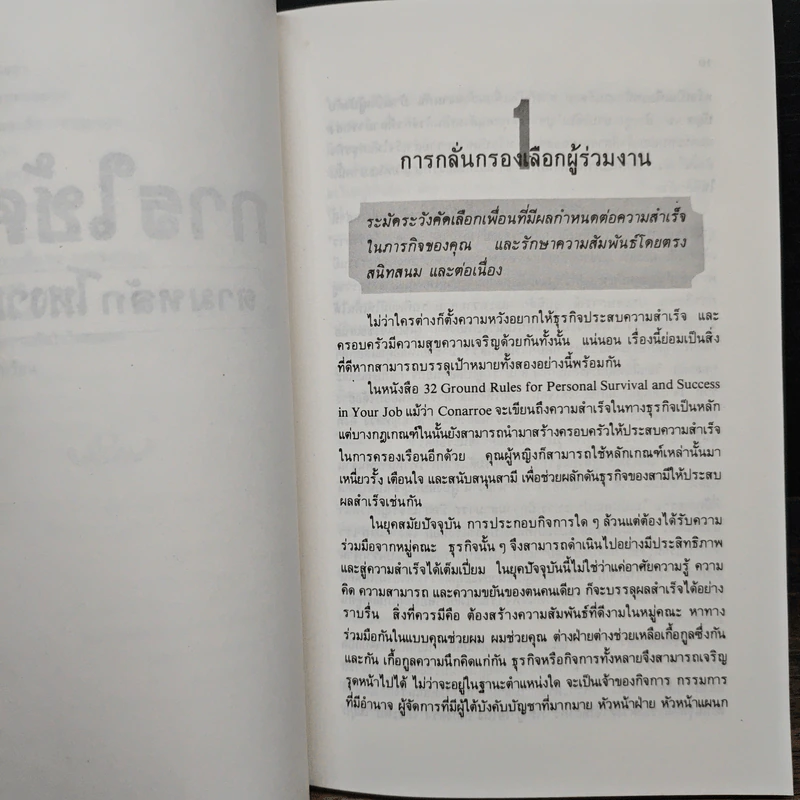 การใช้ค
ตามหลัก
1
การกลั่นกรองเลือกผู้ร่วมงาน
ระมัดระวังคัดเลือกเพื่อนที่มีผลกำหนดต่อความสำเร็จ
ในภารกิจของคุณ และรักษาความสัมพันธ์โดยตรง
สนิทสนม และต่อเนื่อง
ไม่ว่าใครต่างก็ตั้งความหวังอยากให้ธุรกิจประสบความสำเร็จ และ
ครอบครัวมีความสุขความเจริญด้วยกันทั้งนั้น แน่นอน เรื่องนี้ย่อมเป็นสิ่ง
ที่ดีหากสามารถบรรลุเป้าหมายทั้งสองอย่างนี้พร้อมกัน
ในหนังสือ 32 Ground Rules for Personal Survival and Success
in Your Job แม้ว่า Conarroe จะเขียนถึงความสำเร็จในทางธุรกิจเป็นหลัก
แต่บางกฎเกณฑ์ในนั้นยังสามารถนำมาสร้างครอบครัวให้ประสบความสำเร็จ
ในการครองเรือนอีกด้วย คุณผู้หญิงก็สามารถใช้หลักเกณฑ์เหล่านั้นมา
เหนี่ยวรั้ง เตือนใจ และสนับสนุนสามี เพื่อช่วยผลักดันธุรกิจของสามีให้ประสบ
ผลสำเร็จเช่นกัน
ในยุคสมัยปัจจุบัน การประกอบกิจการใด ๆ ล้วนแต่ต้องได้รับความ
ร่วมมือจากหมู่คณะ ธุรกิจนั้น ๆ จึงสามารถดำเนินไปอย่างมีประสิทธิภาพ
และสู่ความสำเร็จได้เต็มเปี่ยม ในยุคปัจจุบันนี้ไม่ใช่ว่าแค่อาศัยความรู้ ความ
คิด ความสามารถ และความขยันของตนคนเดียว ก็จะบรรลุผลสำเร็จได้อย่าง
ราบรื่น สิ่งที่ควรมีคือ ต้องสร้างความสัมพันธ์ที่ดีงามในหมู่คณะ หาทาง
ร่วมมือกันในแบบคุณช่วยผม ผมช่วยคุณ ต่างฝ่ายต่างช่วยเหลือเกื้อกูลซึ่งกัน
และกัน เกื้อกูลความนึกคิดแก่กัน ธุรกิจหรือกิจการทั้งหลายจึงสามารถเจริญ
รุดหน้าไปได้ ไม่ว่าจะอยู่ในฐานะตำแหน่งใด จะเป็นเจ้าของกิจการ กรรมการ
ที่มีอำนาจ ผู้จัดการที่มีผู้ใต้บังคับบัญชาที่มากมาย หัวหน้าฝ่าย หัวหน้าแผนก